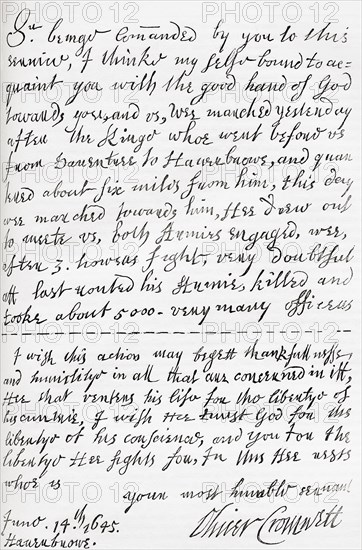 Sr beinge com̄anded by you to this
service, I thinke my selfe bound to ac-
quaint you with the good hand of God
towards you, and vs, Wee marched yesterday
after the Kinge whoe went before vs
from Daventree to Haverbrowe, and quar
tred about six miles from him, this day
wee marched towards him, Hee drew out
to meete vs, both Armies engaged, wee,
after 3. howers fight, very doubtful
att last routed his Armie, killed and
tooke about 5000 - very many officers
I wish this action may begett thankfullnesse
and humilitye in all that are concerned in itt,
Hee that venters his life for the libertye of
his cuntrie, I wish Hee trust God for the
libertye of his conscience, and you for the
libertye Hee fights for, In this Hee rests
whoe is
your most humble servant
June. 14th 1645.
Haverbrowe.
Oliver Cromwell